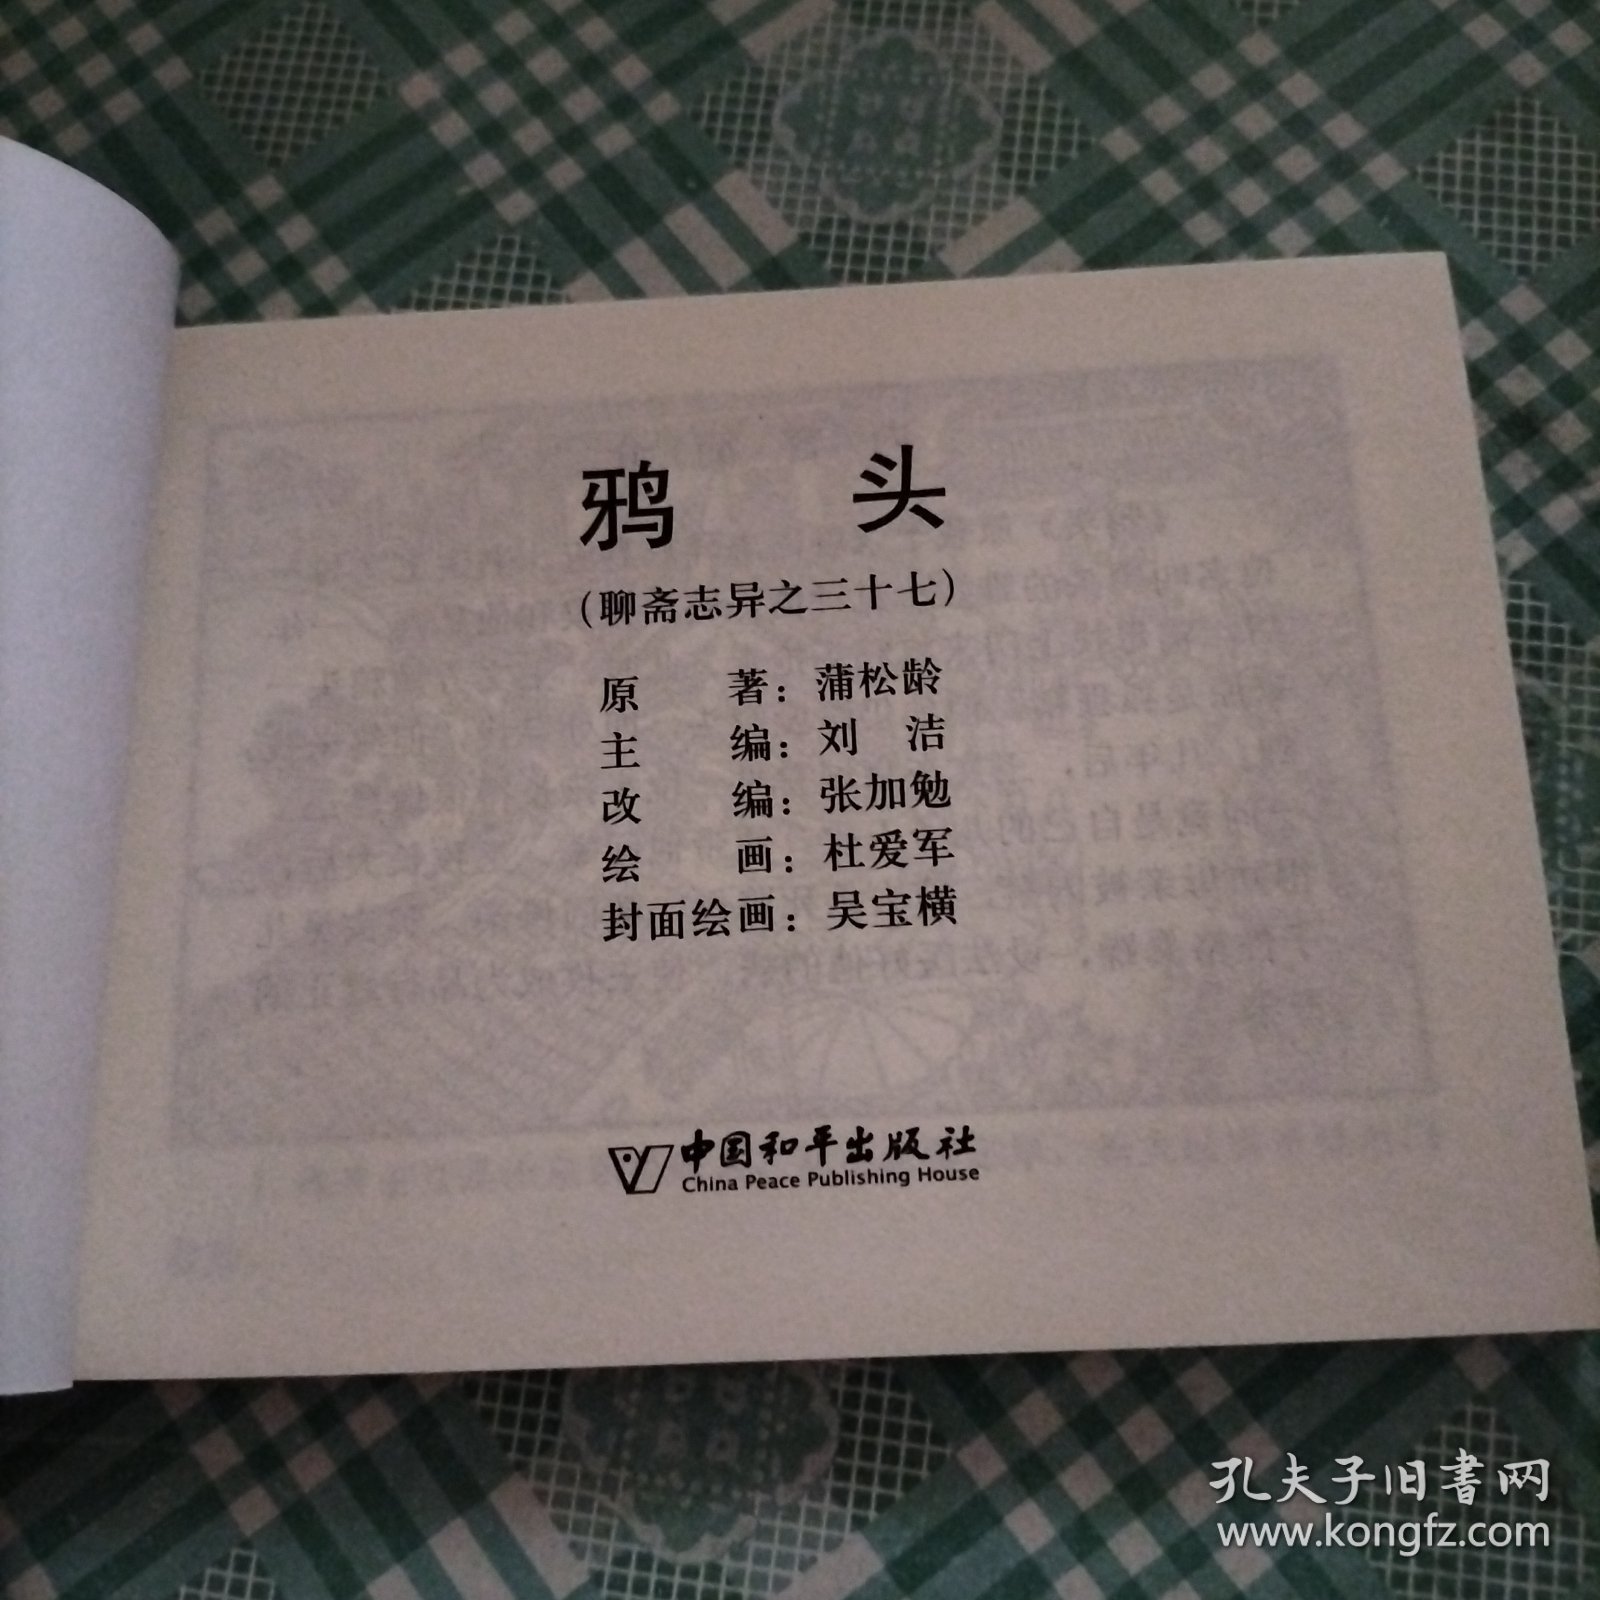 鸦 头
（聊斋志异之三十七）
原 著：蒲松龄
主 编：刘 洁
改 编：张加勉
绘 画：杜爱军
封面绘画：吴宝横
中国和平出版社
China Peace Publishing House
孔夫子旧书网
www.kongfz.com